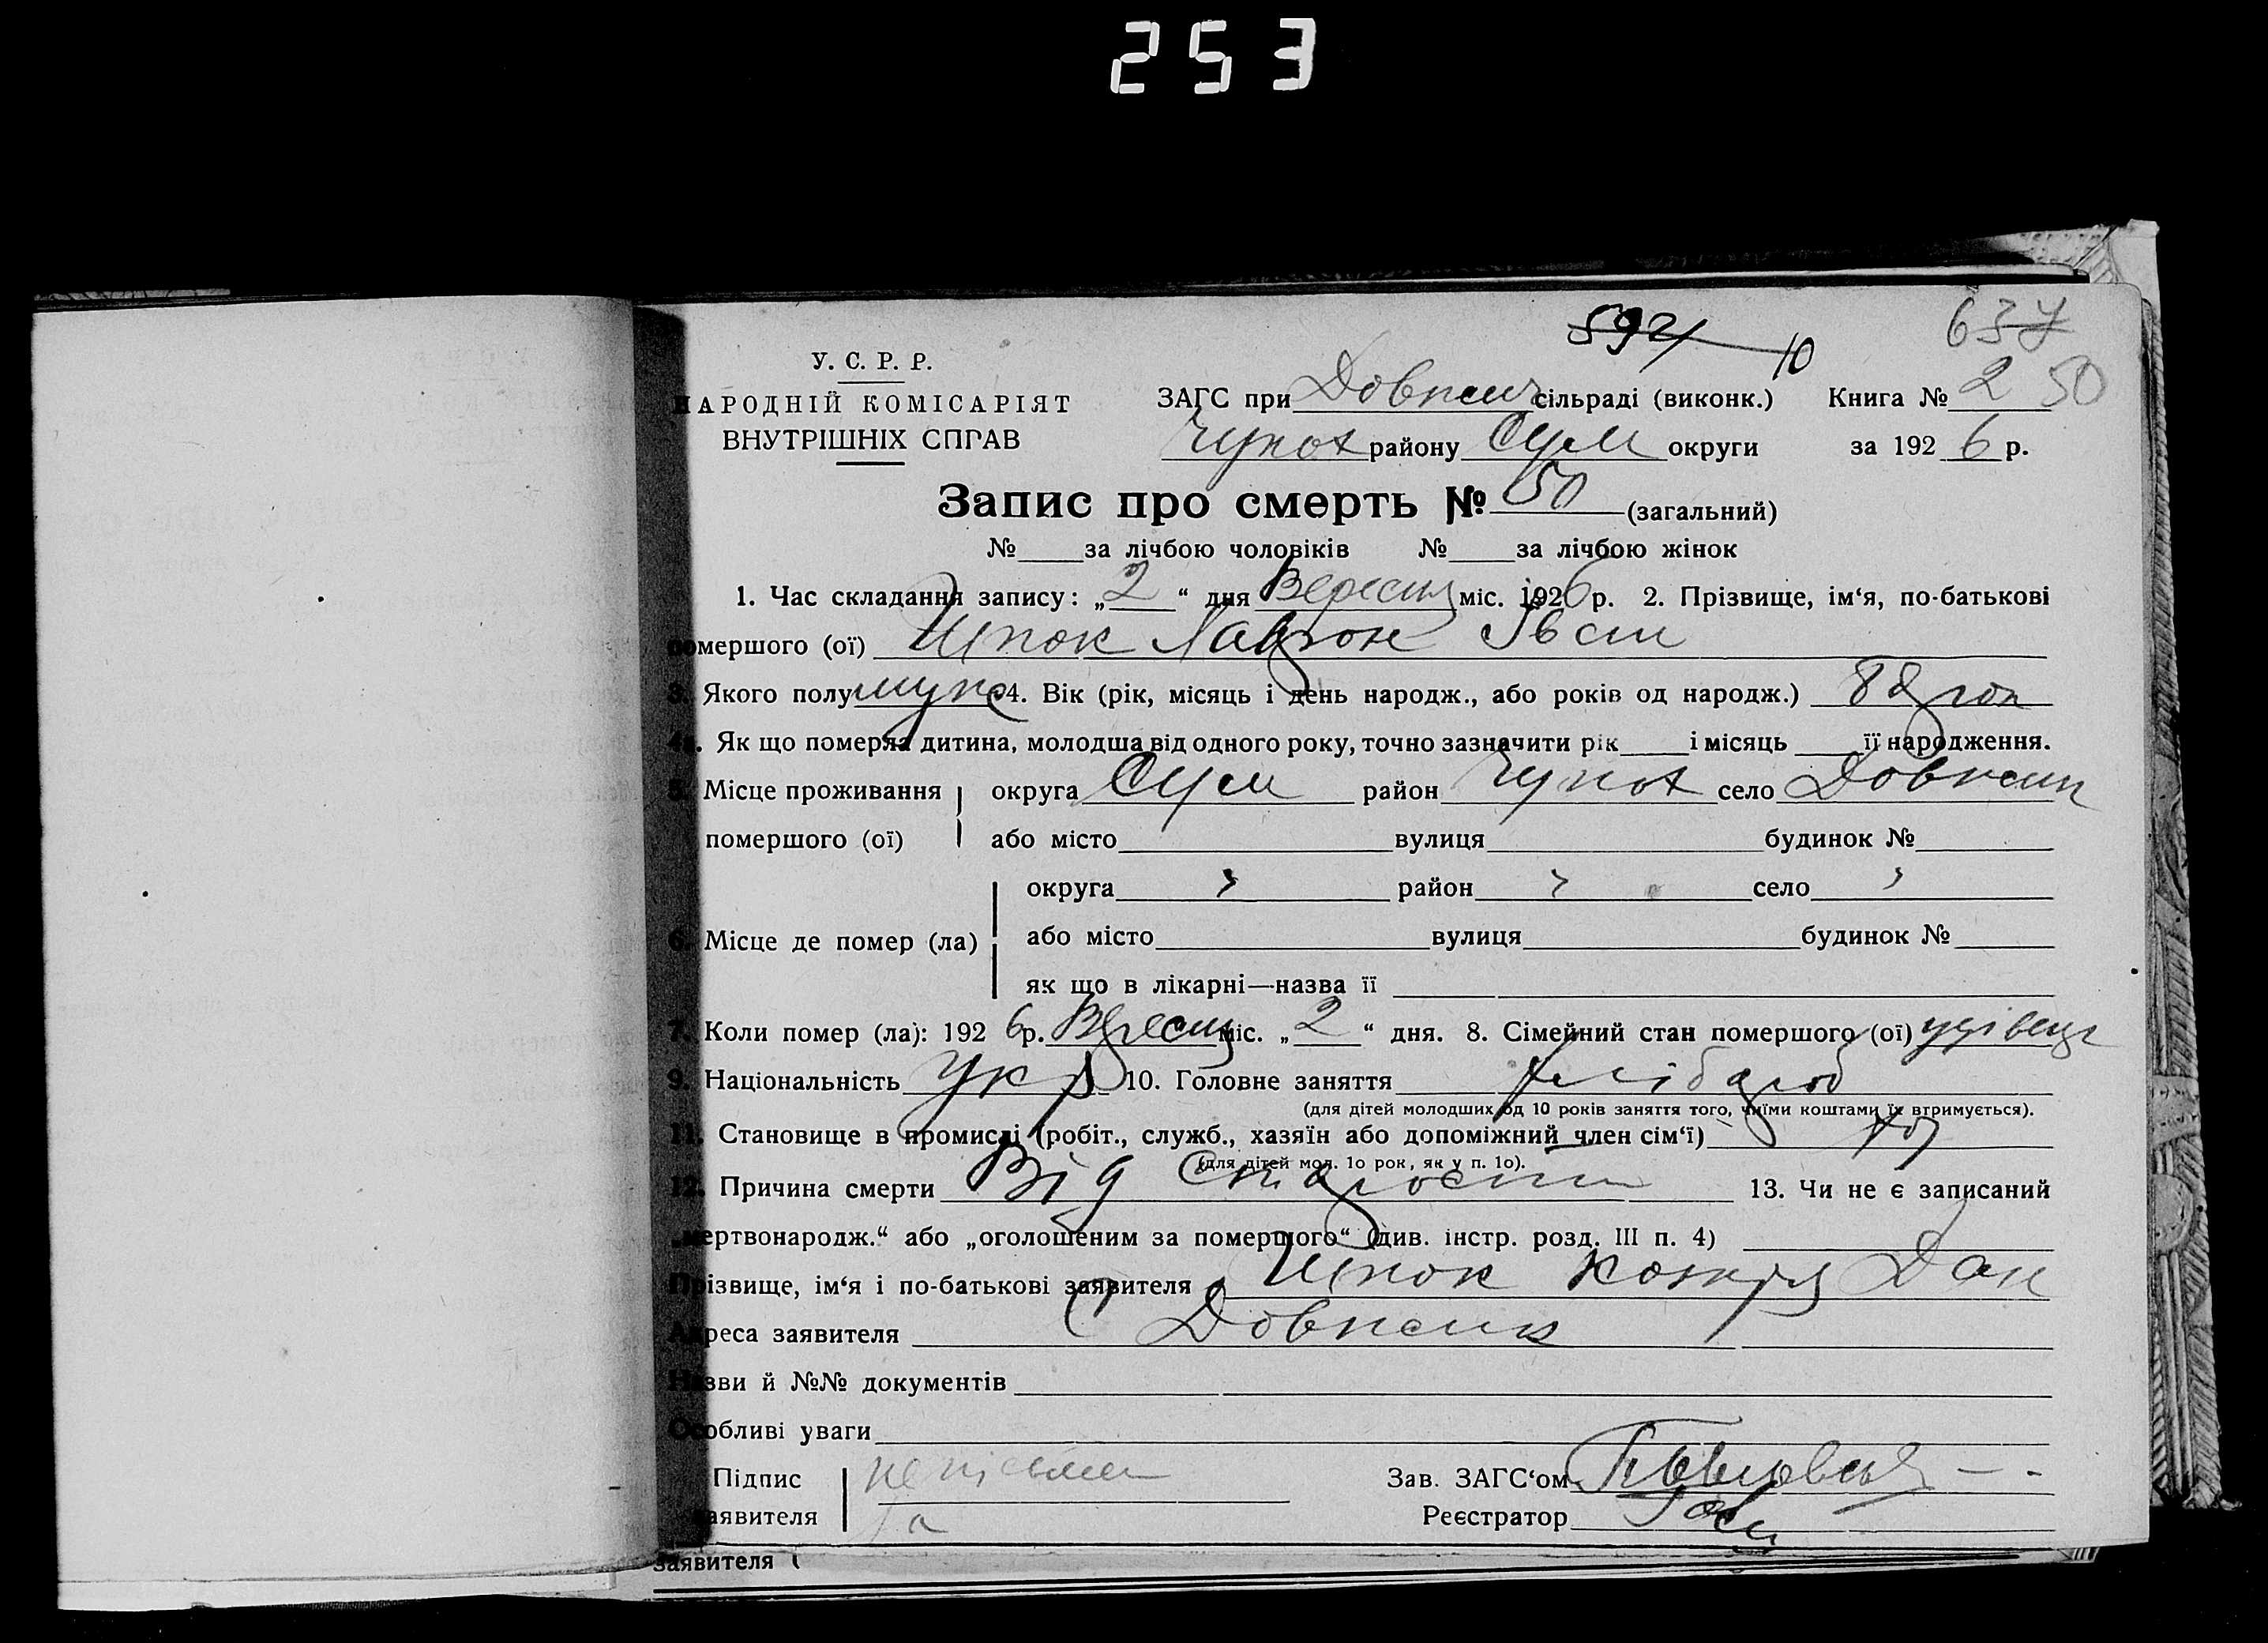 253
592/10
637
У. С. Р. Р.
НАРОДНІЙ КОМІСАРІЯТ
ВНУТРІШНІХ СПРАВ
ЗАГС при Довжи сільраді (виконк.) Книга № 2 50
Чупах району Сум округи за 1926 р.
Запис про смерть № 50 (загальний)
№ за лічбою чоловіків № за лічбою жінок
1. Час складання запису: „2“ дня Вересня міс. 1926 р. 2. Прізвище, ім‘я, по-батькові
помершого (ої) Шпок Іван
3. Якого полу муж 4. Вік (рік, місяць і день народж., або років од народж.) 88 рок
4а. Як що померла дитина, молодша від одного року, точно зазначити рік і місяць її народження.
5. Місце проживання округа Сум район село
помершого (ої) або місто вулиця будинок №
округа район село
6. Місце де помер (ла) або місто вулиця будинок №
як що в лікарні—назва її
7. Коли помер (ла): 1926 р. Вересня міс. „2“ дня. 8. Сімейний стан помершого (ої) удівець
9. Національність Укр 10. Головне заняття хлібороб
(для дітей молодших од 10 років заняття того, чиїми коштами їх втримується).
11. Становище в промислі (робіт., служб., хазяїн або допоміжний член сім‘ї) хоз
(для дітей мол. 10 рок, як у п. 10).
12. Причина смерти Від старости 13. Чи не є записаний
„мертвонародж.“ або „оголошеним за помершого“ (див. інстр. розд. III п. 4)
Прізвище, ім‘я і по-батькові заявителя Шпок Дан
Адреса заявителя
Назви й №№ документів
Особливі уваги
Підпис неписьмен Зав. ЗАГС‘ом
заявителя Реєстратор
заявителя